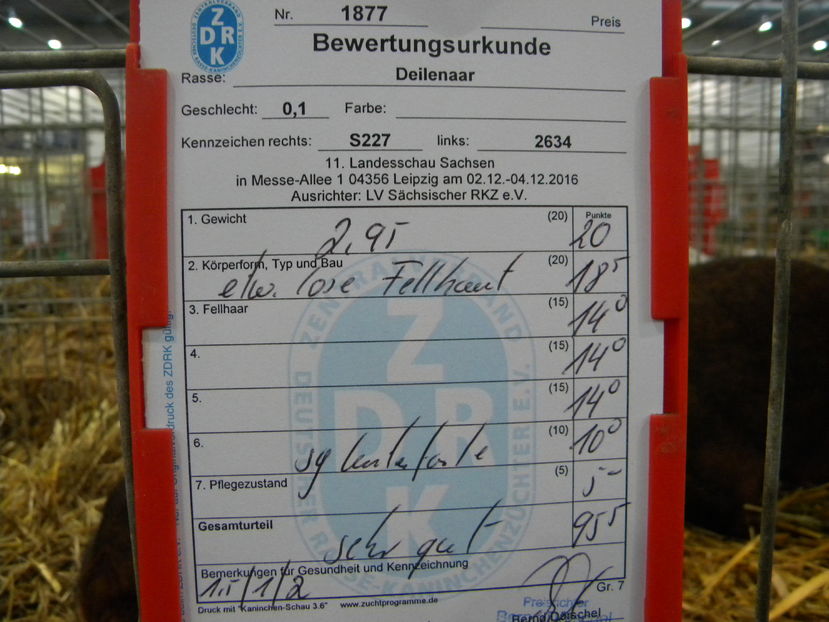 ZDRK
Nr. 1877 Preis
Bewertungsurkunde
Rasse: Deilenaar
Geschlecht: 0,1 Farbe:
Kennzeichen rechts: S227 links: 2634
11. Landesschau Sachsen
in Messe-Allee 1 04356 Leipzig am 02.12.-04.12.2016
Ausrichter: LV Sächsischer RKZ e.V.
Punkte
1. Gewicht 2,95 (20) 20
2. Körperform, Typ und Bau (20) 18⁵
etw. lose Fellhaut
3. Fellhaar (15) 14⁰
4. (15) 14⁰
5. (15) 14⁰
6. (10) 10⁰
sg
7. Pflegezustand (5) 5-
Gesamturteil sehr gut 95⁵
Bemerkungen für Gesundheit und Kennzeichnung
1.5/1/2
Gr. 7
Druck mit "Kaninchen-Schau 3.6" www.zuchtprogramme.de
Preisrichter
ZENTRALVERBAND
ZDRK
DEUTSCHER RASSE-KANINCHENZÜCHTER E.V.